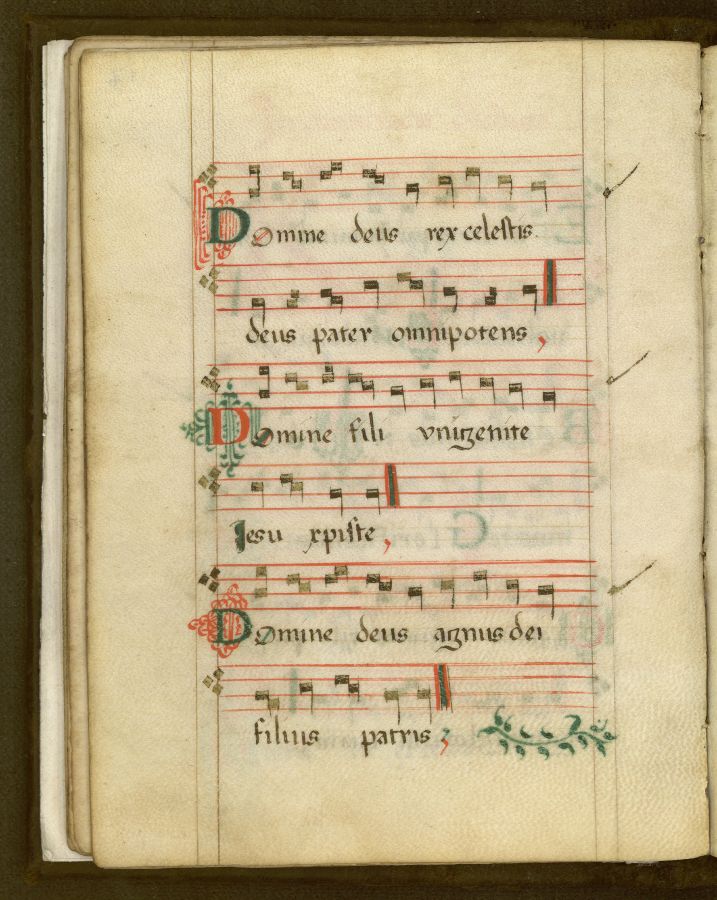 Domine deus rex celestis.
deus pater omnipotens,
Domine fili vnigenite
Jesu xpiste,
Domine deus agnus dei
filius patris;